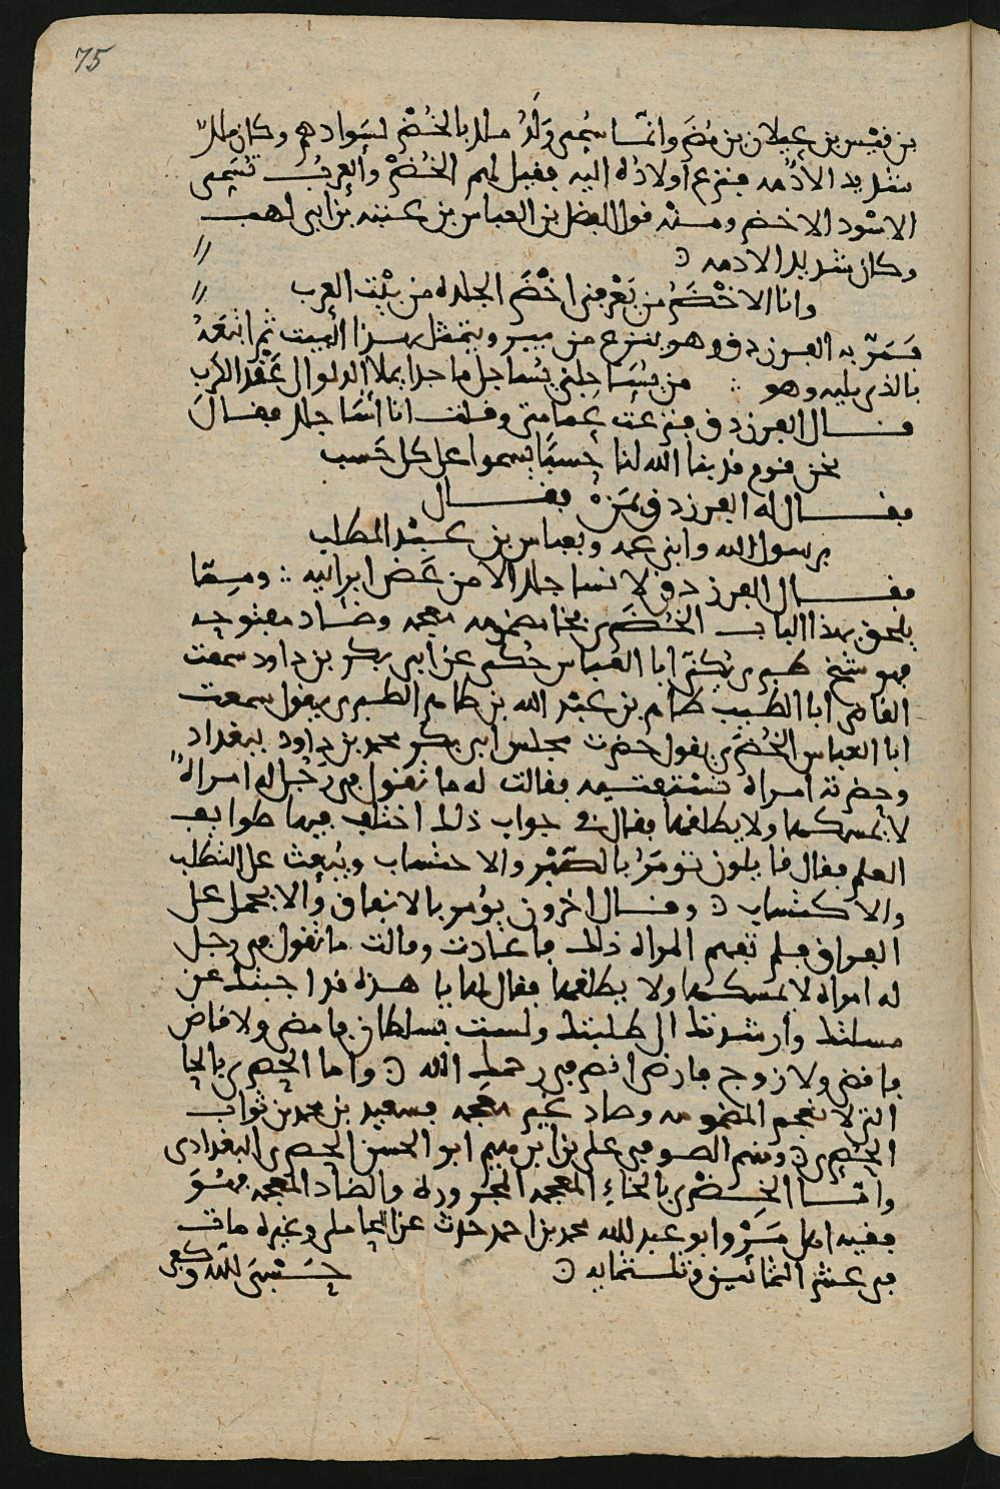 75
بن قيس بن عيلان بن مضر وانما سمى ولد ملك بالخضر لسوادهم وكان ملك
شديد الادمه فنزع اولاده اليه فقيل لهم الخضر والعرب تسمى
الاسود الاخضر ومنه قول الفضل بن العباس بن عتبه بن ابى لهب
وكان شديد الادمه
وانا الاخضر من يعرفنى اخضر الجلده من بيت العرب
فمر به الفرزدق وهو ينزع من بير ويتمثل بهذا البيت ثم اتبعه
بالذى يليه وهو من يساجلنى يساجل ماجدا يملأ الدلو الى عقد الكرب
قال الفرزدق فنزعت عمامتى وقلت انا اساجلك فقال
نحن قوم قد بنا الله لنا حسبا يسموا على كل حسب
فقال له الفرزدق فمَن فقال
برسول الله وابنى عمه وبعباس بن عبد المطلب
فقال الفرزدق لا يساجلك الا من عض اير ابيه ومما
يلحق بهذا الباب الخضرى بخا مضمومه معجمه وضاد مفتوحه
فهو شيخ طبرى يكنى ابا العباس حكى عن ابى بكر بن داود سمعت
القاضى ابا الطيب طاهر بن عبد الله بن طاهر الطبرى يقول سمعت
ابا العباس الخضرى يقول حضرت مجلس ابى بكر محمد بن داود ببغداد
وحضرته امراة تستفتيه فقالت له ما تقول فى رجل له امراة
لا يمسكها ولا يطلقها فقال فى جواب ذلك اختلف فيها طوايف
العلم فقال قايلون تومر بالصبر والاحتساب ويبعث على التطلب
والاكتساب وقال اخرون يؤمر بالانفاق والا يحمل على
الفراق فلم تفهم المراة ذلك فاعادت وقالت ما تقول فى رجل
له امراة لا يمسكها ولا يطلقها فقال لها يا هذه قد اجبتك عن
مسلتك وارشدتك الى طلبتك ولست بسلطان فامضى ولا قاض
فاقضى ولا زوج فارضى انصرفى رحمك الله واما الحصرى بالحا
التى لا تعجم المضمومه وصاد غير معجمه فسعيد بن محمد بن ثواب
الحصرى ومنهم الصوفى على بن ابرهيم ابو الحسن الحصرى البغدادى
واما الخضرى بالخاء المعجمه المجرورة والضاد المعجمه فهو
فقيه اهل مرو ابو عبد الله محمد بن احمد حدث عن المحاملى وغيره مات
فى عشر الثمانين وثلثمايه
حسبى الله وكفى